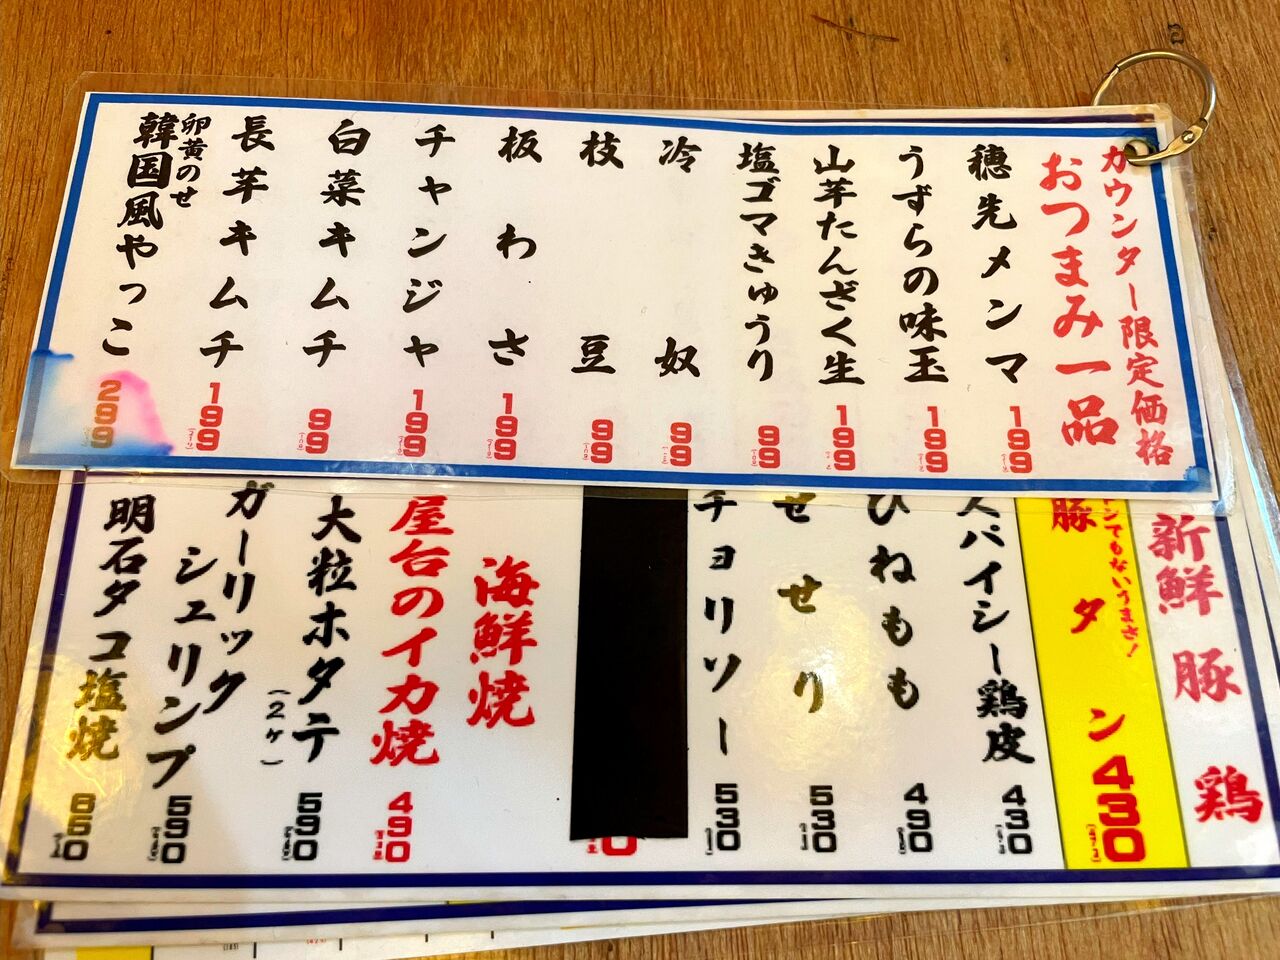 カウンター限定価格
おつまみ一品
穂先メンマ 199
うずらの味玉 199
山芋たんざく生 199
塩ゴマきゅうり 99
冷奴 99
枝豆 99
板わさ 199
チャンジャ 199
白菜キムチ 99
長芋キムチ 199
卵黄のせ
韓国風やっこ 299
新鮮豚鶏
トンでもないうまさ!
豚タン 430
スパイシー鶏皮 430
ひねもも 490
せせり 530
チョリソー 530
海鮮焼
屋台のイカ焼 490
大粒ホタテ (2ヶ) 590
ガーリックシュリンプ 590
明石タコ塩焼